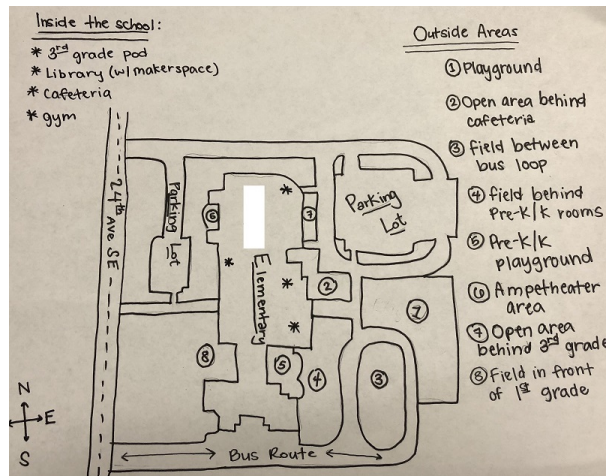 Inside the school:
* 3rd grade pod
* Library (w/makerspace)
* Cafeteria
* gym
Outside Areas
① Playground
② Open area behind
cafeteria
③ field between
bus loop
④ field behind
Pre-k/k rooms
⑤ Pre-k/k
playground
⑥ Ampetheater
area
⑦ Open area
behind 3rd grade
⑧ Field in front
of 1st grade
24th Ave SE
Parking
Lot
Parking
Lot
Elementary
⑥
⑦
②
1
⑧
⑤
④
③
*
*
*
*
N
E
S
Bus Route